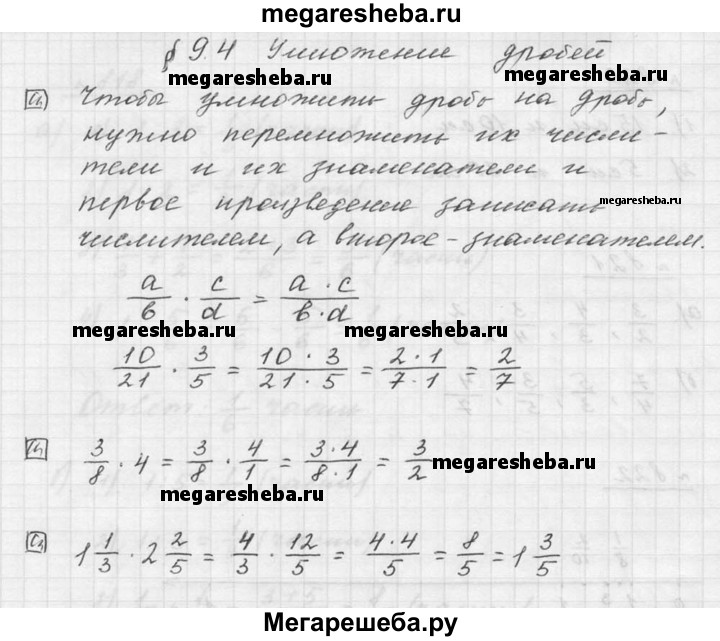 megaresheba.ru
§ 9.4 Умножение дробей
megaresheba.ru megaresheba.ru
Чтобы умножить дробь на дробь,
нужно перемножить их числи-
тели и их знаменатели и
первое произведение записать
megaresheba.ru
числителем, а второе - знаменателем.
a/b · c/d = a · c / b · d
megaresheba.ru megaresheba.ru
10/21 · 3/5 = 10 · 3 / 21 · 5 = 2 · 1 / 7 · 1 = 2/7
3/8 · 4 = 3/8 · 4/1 = 3 · 4 / 8 · 1 = 3/2
megaresheba.ru
megaresheba.ru
1 1/3 · 2 2/5 = 4/3 · 12/5 = 4 · 4 / 5 = 8/5 = 1 3/5
Мегарешеба.ру